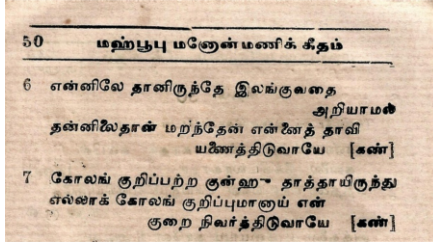 50 மஹ்பூபு மனோன்மணிக் கீதம்
6 என்னிலே தானிருந்தே இலங்குவதை
அறியாமல்
தன்னிலைதான் மறந்தேன் என்னைத் தாவி
யணைத்திடுவாயே [கண்]
7 கோலங் குறிப்பற்ற குன்ஹு தாத்தாயிருந்து
எல்லாக் கோலங் குறிப்புமானாய் என்
குறை நிவர்த்திடுவாயே [கண்]